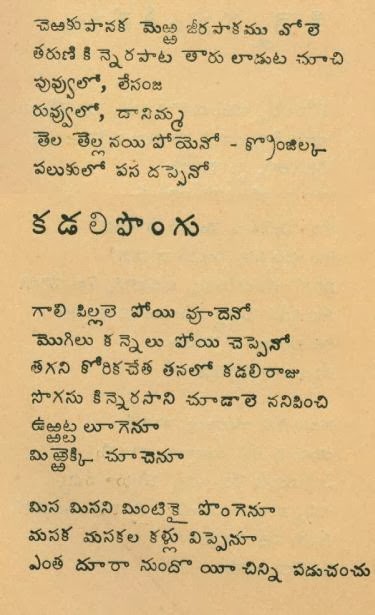 చెఱకుపానక మెఱ్ఱ జీరపాకము వోలె
తరుణి కిన్నెరపాట తారు లాడుట చూచి
పువ్వులో, లేసంజ
రువ్వులో, దానిమ్మ
తెల తెల్లనయి పోయెనో - కొర్రింజిల్క
పలుకులో పస దప్పెనో
కడలిపొంగు
గాలి పిల్లలె పోయి వూదెనో
మొగిలు కన్నెలు పోయి చెప్పెనో
తగని కోరికచేత తనలో కడలిరాజు
సొగసు కిన్నెరసాని చూడాలె ననిపించి
ఉఱ్ఱట్ట లూగెనూ
మిఱ్ఱెక్కి చూచెనూ
మిస మిసని మింటికై పొంగెనూ
మసక మసకల కళ్లు విప్పెనూ
ఎంత దూరా నుందొ యీ చిన్ని పడుచంచు